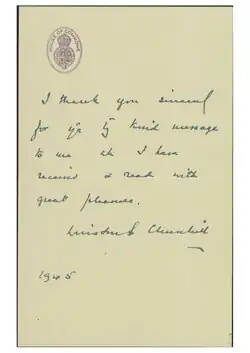 HOUSE OF COMMONS
I thank you sincerely
for yr kind message
to me wh I have
received & read with
great pleasure.
Winston S Churchill
1945